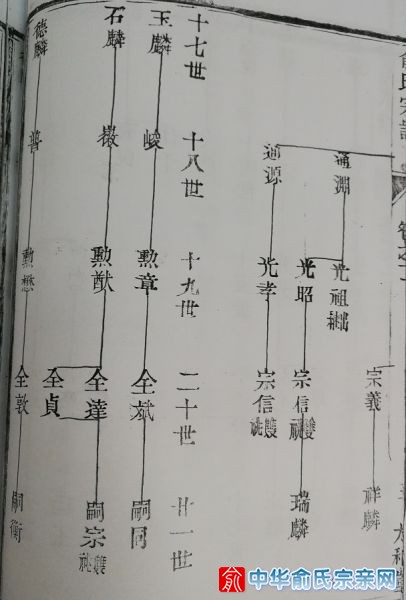 俞氏宗譜
卷之二
宗義
祥麟
通淵
光祖
光昭
宗信雙祧
瑞麟
通源
光孝
宗信雙祧
十七世
十八世
十九世
二十世
廿一世
玉麟
峻
勲章
全斌
嗣同
石麟
勲猷
全達
嗣宗雙祧
全貞
德麟
普
勲懋
全敦
嗣衡
中华俞氏宗亲网